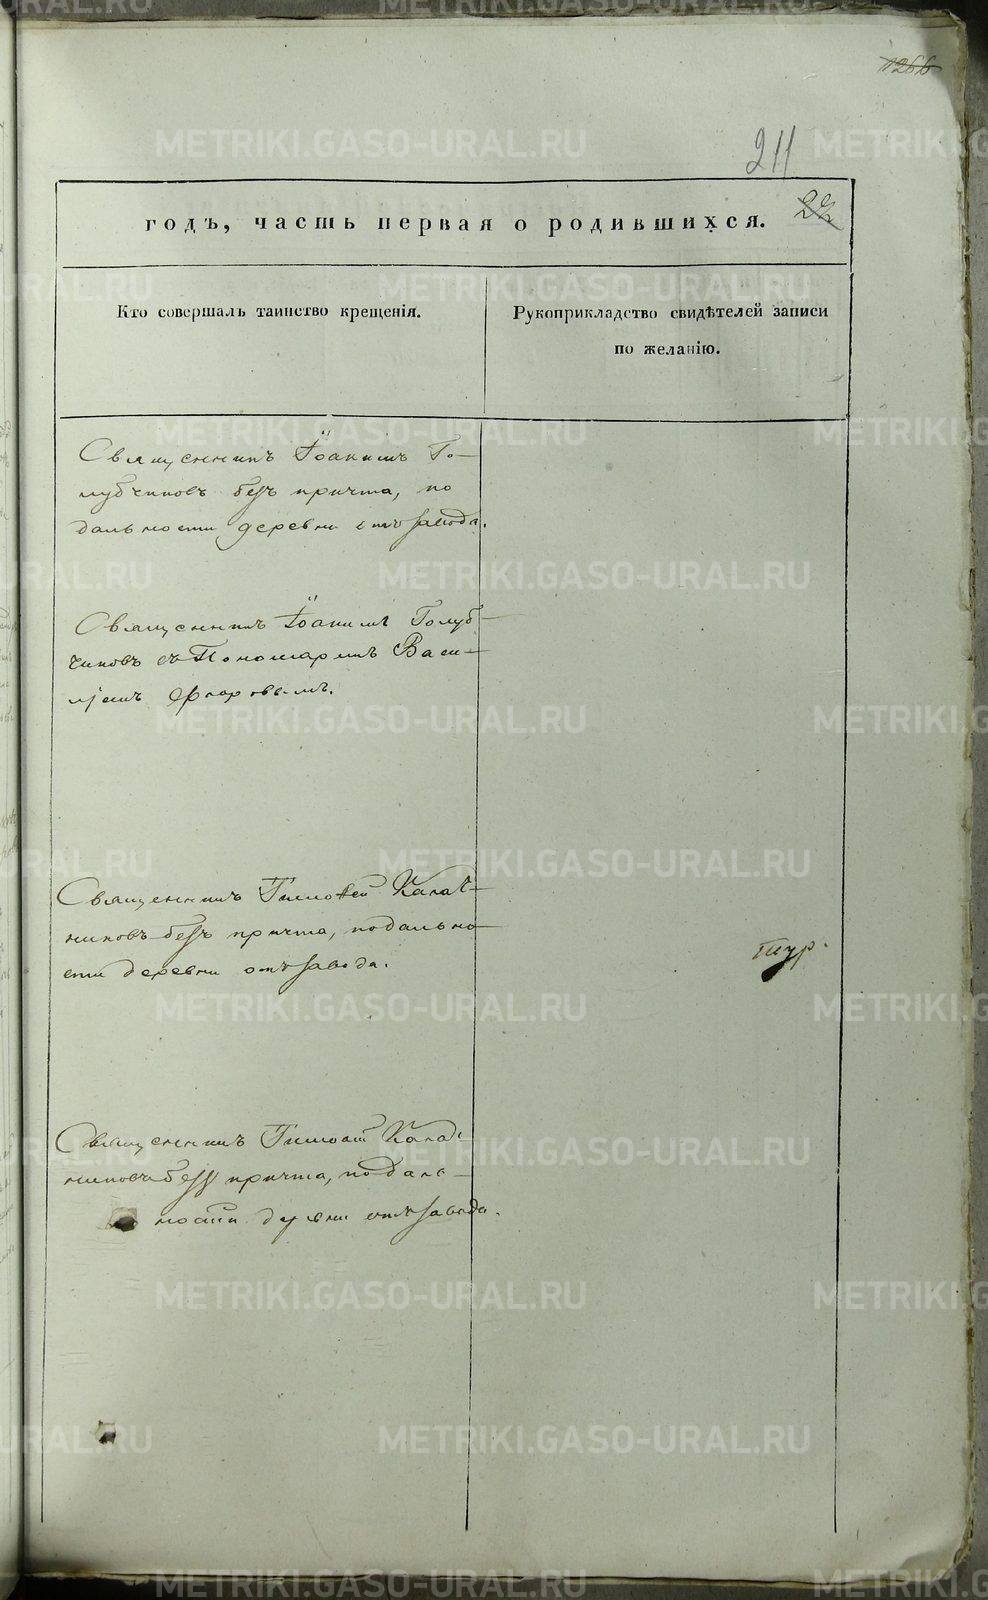 1266
211
22
годъ, часть первая о родившихся.
Кто совершалъ таинство крещенія.
Рукоприкладство свидѣтелей записи
по желанію.
Священникъ Іоакимъ Го-
лубчиковъ безъ причта, по
дальности деревни отъ завода.
Священникъ Іоакимъ Голуб-
чиковъ съ Пономаремъ Васи-
ліемъ
Священникъ Тимоѳей Калач-
никовъ безъ причта, по дально-
сти деревни отъ завода.
Священникъ Тимоѳей
никовъ безъ причта, по даль-
ности деревни отъ завода.
METRIKI.GASO-URAL.RU